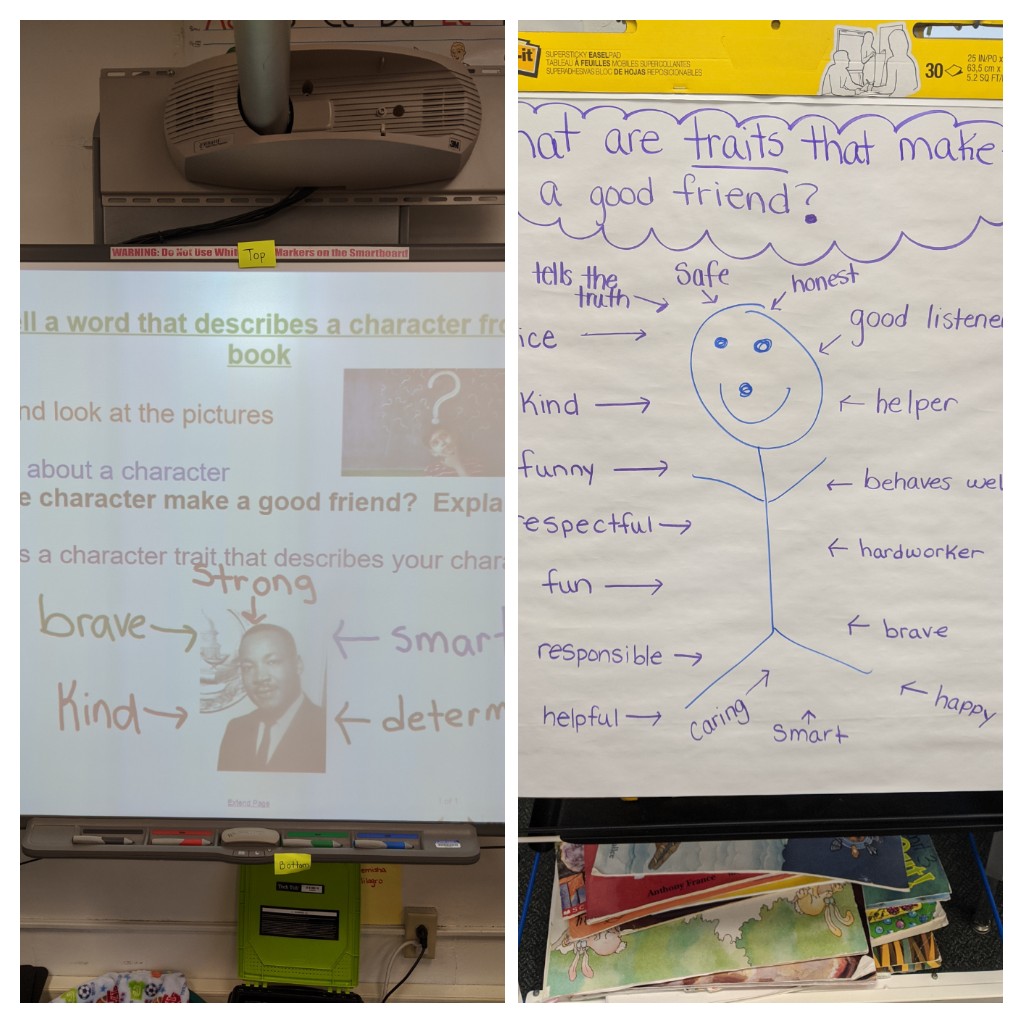 WARNING: Do Not Use Whit Markers on the Smartboard
Top
ll a word that describes a character fr
book
nd look at the pictures
about a character
e character make a good friend? Expla
s a character trait that describes your char
Strong
brave
smart
Kind
determ
Extend Page
Bottom
3M
-it
SUPERSTICKY EASEL PAD
TABLEAU À FEUILLES MOBILES SUPERCOLLANTES
SUPERADHESIVAS BLOC DE HOJAS REPOSICIONABLES
30
25 IN/PO x
63,5 cm x
5.2 SQ FT/
hat are traits that make
a good friend?
tells the
truth
Safe
honest
ice
good listene
Kind
helper
funny
behaves wel
espectful
hardworker
fun
brave
responsible
happy
helpful
caring
Smart
Anthony France